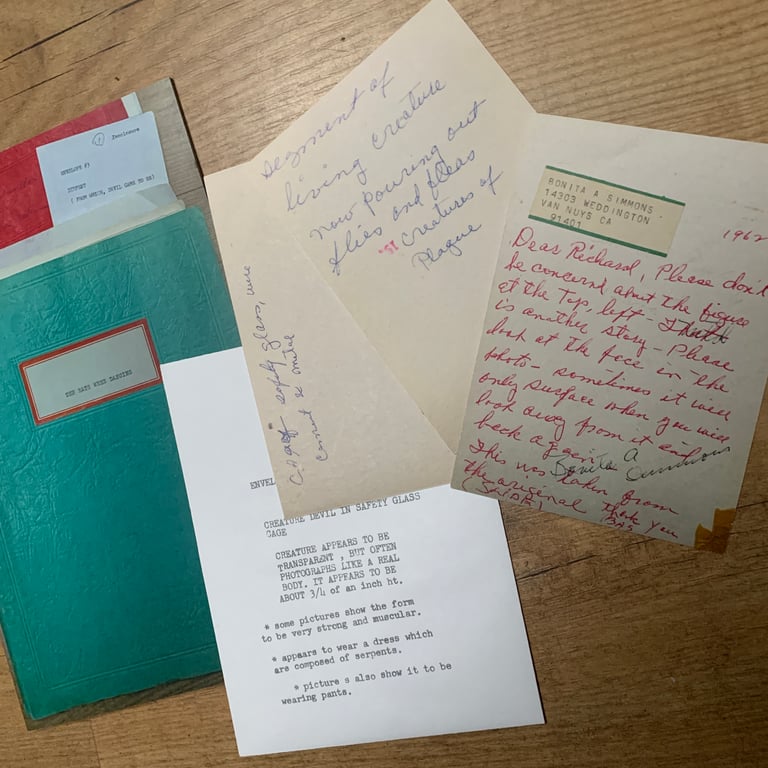 (1) Enclosure
ENVELOPE #3
SUPPORT
( FROM WHICH, DEVIL CAME TO US)
THE RATS WERE DANCING
segment of
living creature
now pouring out
flies and fleas
"creatures of
Plague
safety glass, wire
cement & metal
BONITA A SIMMONS
14303 WEDDINGTON
VAN NUYS CA
91401
1962
Dear Richard, Please don't
be concernd about the figure
at the Top left - That
is another story - Please
look at the face in the
photo - sometimes it will
only surface when you will
look away from it and
back again. A
Bonita Simmons
This was taken from
the original Thank you
BAS
ENVEL
CREATURE DEVIL IN SAFETY GLASS
CAGE
CREATURE APPEARS TO BE
TRANSPARENT , BUT OFTEN
PHOTOGRAPHS LIKE A REAL
BODY. IT APPEARS TO BE
ABOUT 3/4 of an inch ht.
* some pictures show the form
to be very strong and muscular.
* appears to wear a dress which
are composed of serpents.
* picture s also show it to be
wearing pants.